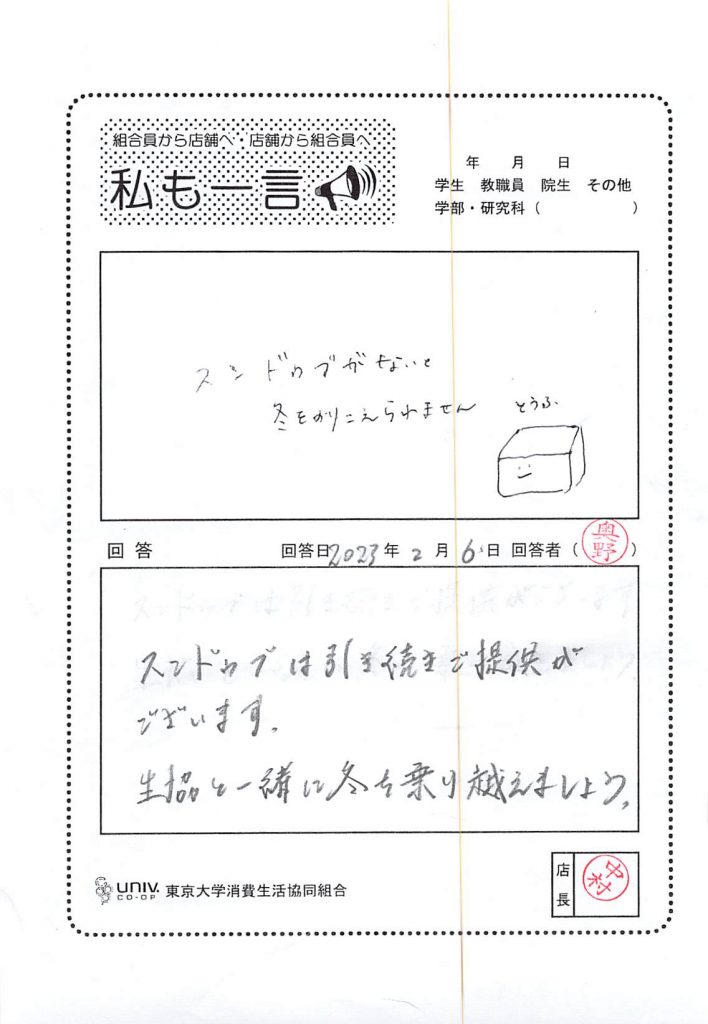 組合員から店舗へ・店舗から組合員へ
私も一言
年 月 日
学生 教職員 院生 その他
学部・研究科（ ）
スンドゥブがないと
冬をのりこえられません
とうふ
回答 回答日2023年2月6日 回答者（奥野）
スンドゥブは引き続きご提供が
ございます。
生協と一緒に冬を乗り越えましょう。
UNIV. CO-OP 東京大学消費生活協同組合
店長 中村